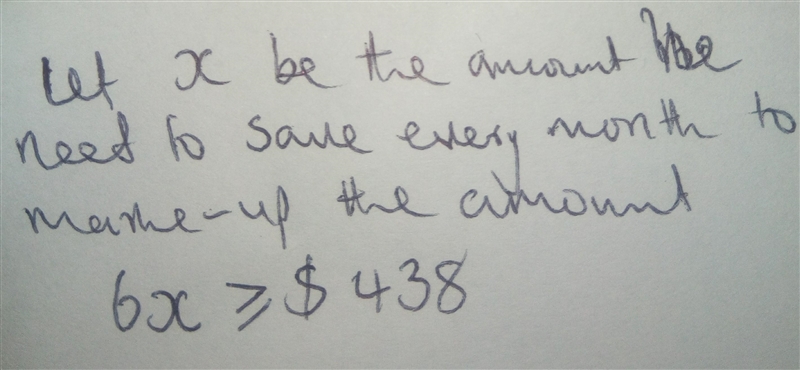 Let x be the amount he
need to save every month to
make-up the amount
6x ≥ $ 438